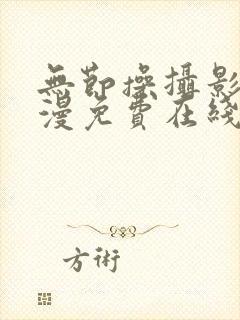 無節操攝影
漫免費在綫
方術